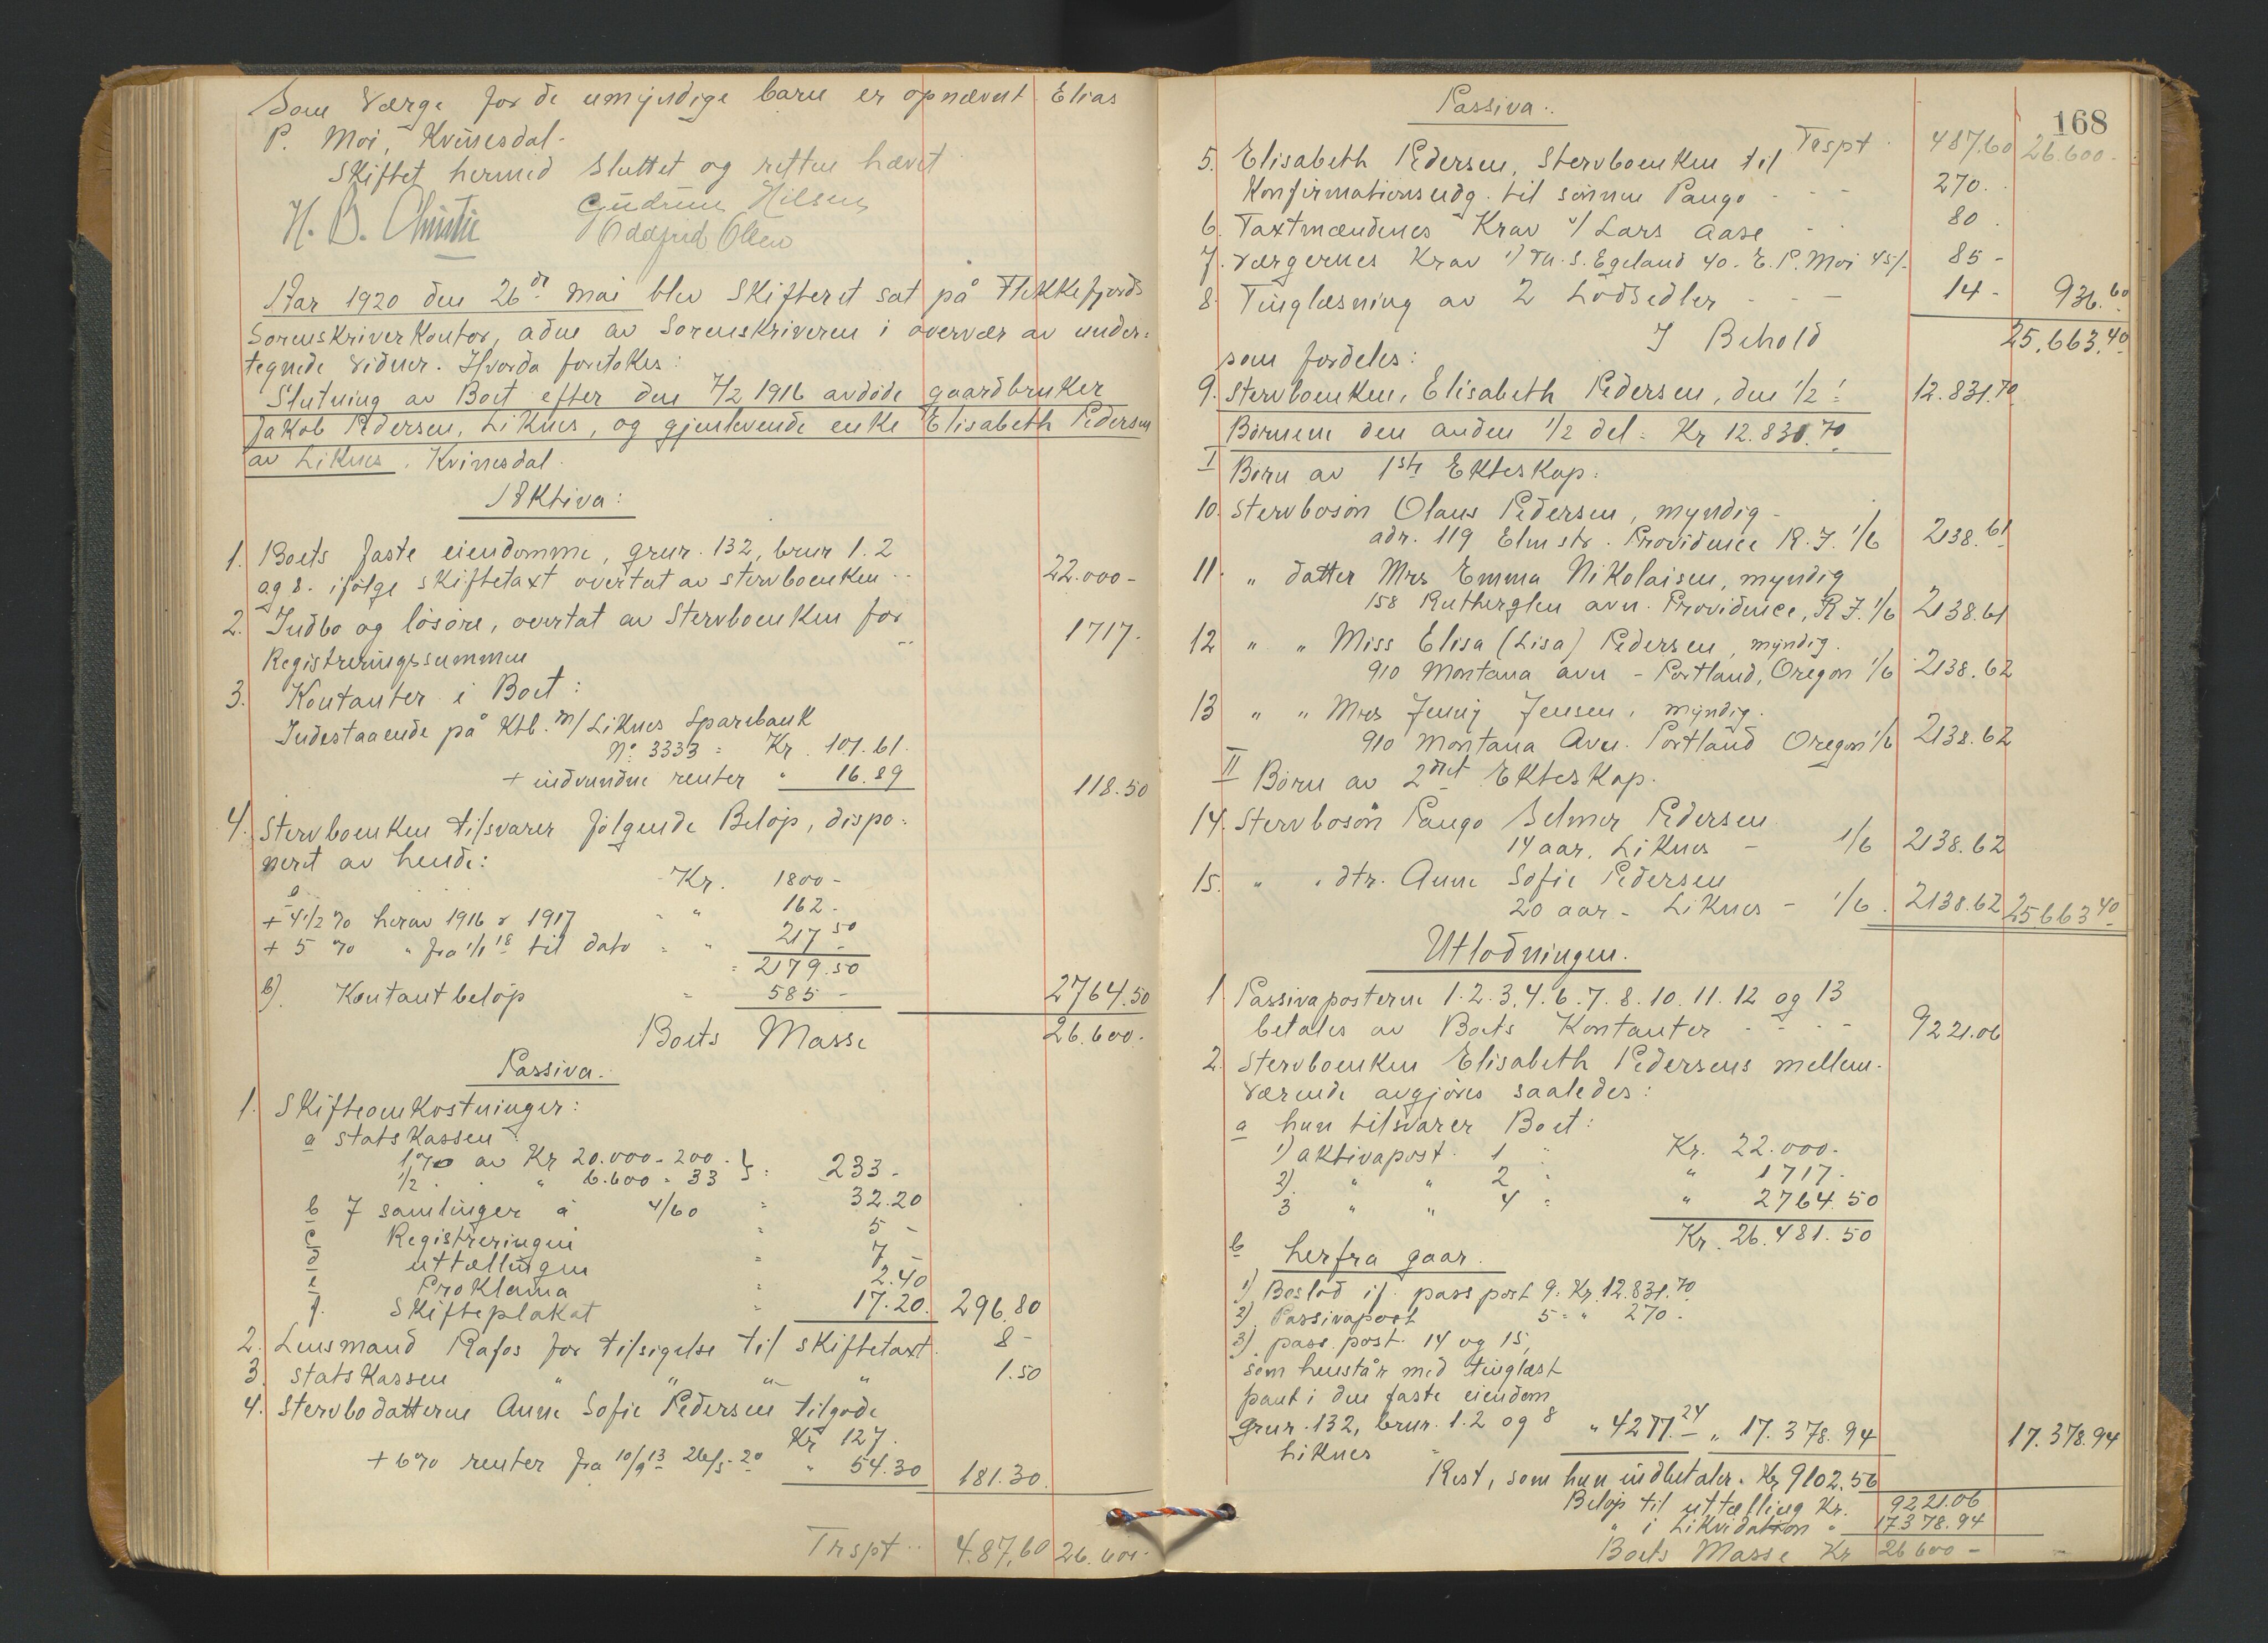 Som Værge for de umyndige barn er opnævnt Elias
P. Moi, Kvinesdal.
Skiftet hermed sluttet og retten hævet
H. B. Christie Gudrun Nilsen
Oddfrid Olsen
Aar 1920 den 26de mai blev Skifteret sat på Flekkefjords
Sorenskriverkontor, adm av Sorenskriveren i overvær av under=
tegnede vidner. Hvorda foretokes:
Slutning av Boet efter den 7/2 1916 avdøde gaardbruker
Jakob Pedersen, Liknes, og gjenlevende enke Elisabeth Pedersen
av Liknes, Kvinesdal.
Aktiva:
1. Boets faste eiendomme, grnr. 132, brnr 1. 2
og 8. ifølge skiftetaxt overtat av stervboenken - - 22.000 -
2. Indbo og løsøre, overtat av Stervboenken for
Registreringssummen - - 1717.
3. Kontanter i Boet:
Indestaaende på Ktb. m/ Liknes Sparebank
No. 3333 = Kr. 101.61.
+ indvundne renter " 16.89 118.50
4. Stervboenken tilsvarer følgende Beløp, dispo=
neret av hende:
a Kr. 1800 -
+ 4 1/2 % herav 1916 & 1917 - " 162 -
+ 5 % " fra 1/1 18 til dato = " 217 50
= 2179.50
b). Kontantbeløp = 585 - 2764.50
Boets Masse 26.600.
Passiva.
1. Skifteomkostninger:
a statskassen
1 % av Kr 20.000 = 200 -
1/2 " " 6.600 = 33 } = 233 -
b 7 samlinger á 4/60 = 32.20
c Registreringen = 5 -
d uttællingen = 7 -
e Proklama = 2.40
f. Skifteplakat = 17.20. 296.80
2. Lensmand Rafos for tilsigelse til skiftetaxt. 8 -
3. Statskassen " " " " 1.50
4. Stervbodatteren Anne Sofie Pedersen tilgode
Kr 127.
+ 6 % renter fra 10/9 13 - 26/5 - 20 " 54.30 181.30.
Trspt - - 487,60 26.600 -
168
Passiva.
Trspt. 487.60 26.600 -
5. Elisabeth Pedersen, Stervboenken til
Konfirmationsudg. til sønnen Pango - - - 270.
6. Taxtmændenes Krav v/ Lars Aase - - 80.
7. Værgernes Krav 1) Th. S. Egeland 40. E. P. Moi 45/- 85 -
8. Tinglæsning av 2 Lodsedler - - - 14 - 936.60
I Behold 25.663.40
som fordeles:
9. Stervboenken, Elisabeth Pedersen, den 1/2 : 12.831.70
Børnene den anden 1/2 del = Kr 12.831.70
I Børn av 1ste Ekteskap.
10. Stervbosøn Olaus Pedersen, myndig -
adr. 119 Elm str. Providence R. I. 1/6 2138.61
11. " datter Mrs Emma Nikolaisen, myndig
158 Rutherglen avn. Providence, R. I. 1/6 2138.61
12 " " Miss Elisa (Lisa) Pedersen, myndig.
910 Montana avn - Portland, Oregon 1/6 2138.62
13 " " Mrs Jenny Jensen, myndig.
910 Montana Aven. Portland Oregon 1/6 2138.62
II Børn av 2det Ekteskap.
14. Stervbosøn Pango Selmer Pedersen
14 aar. Liknes - 1/6 2138.62
15. " " dtr. Anne Sofie Pedersen
20 aar - Liknes - 1/6. 2138.62 25.663 40
Utlodningen.
1 Passivaposterne 1. 2. 3. 4. 6. 7. 8. 10. 11. 12 og 13
betales av Boets Kontanter - - - - 9221.06
2. Stervboenken Elisabeth Pedersens mellem-
værende avgjøres saaledes:
a hun tilsvarer Boet:
1) aktivapost 1 : Kr. 22.000.
2) " " 2 : " 1717.
3 " " 4 = " 2764.50
Kr. 26.481.50
b herfra gaar.
1) Boslod if. pass post 9. Kr. 12.831.70
2) Passivapost 5 = " 270.
3) pass. post. 14 og 15,
som henstår med tinglæst
pant i den faste eiendom
grnr. 132, brnr. 1. 2 og 8 " 4277.24 " 17.378.94 17.378.94
Liknes
Rest, som hun indbetaler. Kr 9102.56
Beløp til uttælling Kr. 9221.06
" i Likvidation " 17378.94
Boets Masse Kr 26600 -